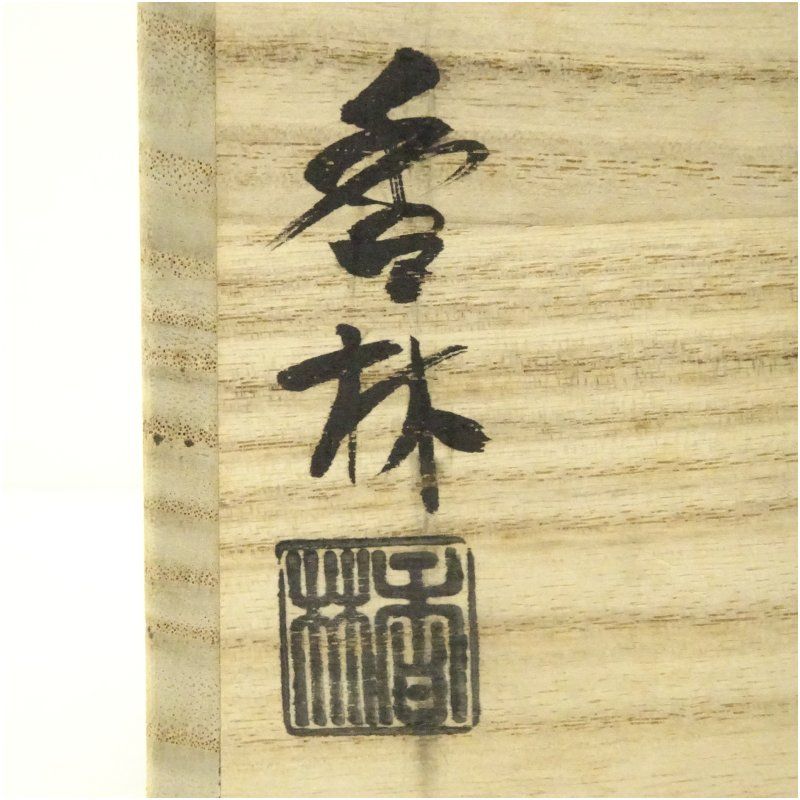 香林
香林